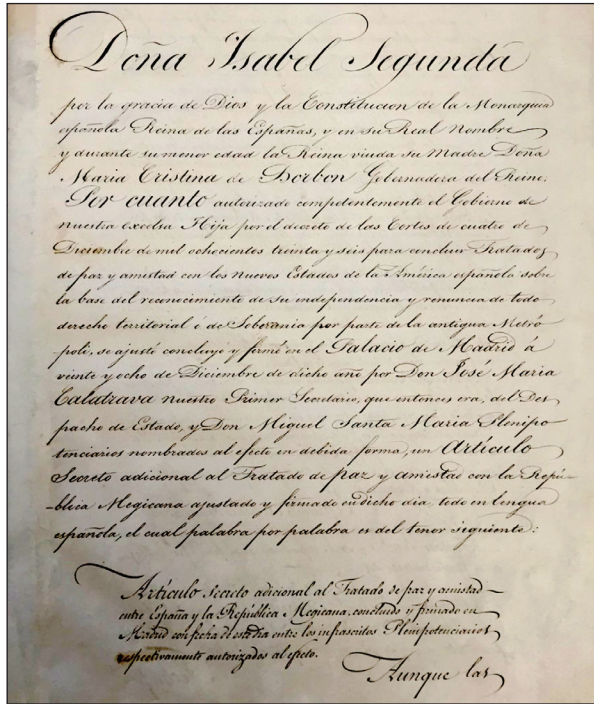 Doña Isabel Segunda
por la gracia de Dios y la Constitucion de la Monarquia
española Reina de las Españas, y en su Real Nombre
y durante su menor edad la Reina viuda su Madre Doña
Maria Cristina de Borbon Gobernadora del Reino:
Por cuanto autorizado competentemente el Gobierno de
nuestra excelsa Hija por el decreto de las Cortes de cuatro de
Diciembre de mil ochocientos treinta y seis para concluir Tratados
de paz y amistad con los Nuevos Estados de la América española sobre
la base del reconocimiento de su independencia y renuncia de todo
derecho territorial ó de Soberania por parte de la antigua Metró
poli, se ajustó concluyó y firmó en el Palacio de Madrid á
veinte y ocho de Diciembre de dicho año por Don José Maria
Calatrava nuestro Primer Secretario, que entonces era, del Des
pacho de Estado, y Don Miguel Santa Maria Plenipo
tenciarios nombrados al efecto en debida forma, un Artículo
Secreto adicional al Tratado de paz y amistad con la Repú-
-blica Megicana ajustado y firmado en dicho dia todo en lengua
española, el cual palabra por palabra es del tenor siguiente:
Artículo Secreto adicional al Tratado de paz y amistad
entre España y la República Megicana, concluido y firmado en
Madrid con fecha de este dia entre los infrascritos Plenipotenciarios
respectivamente autorizados al efecto.
Aunque las